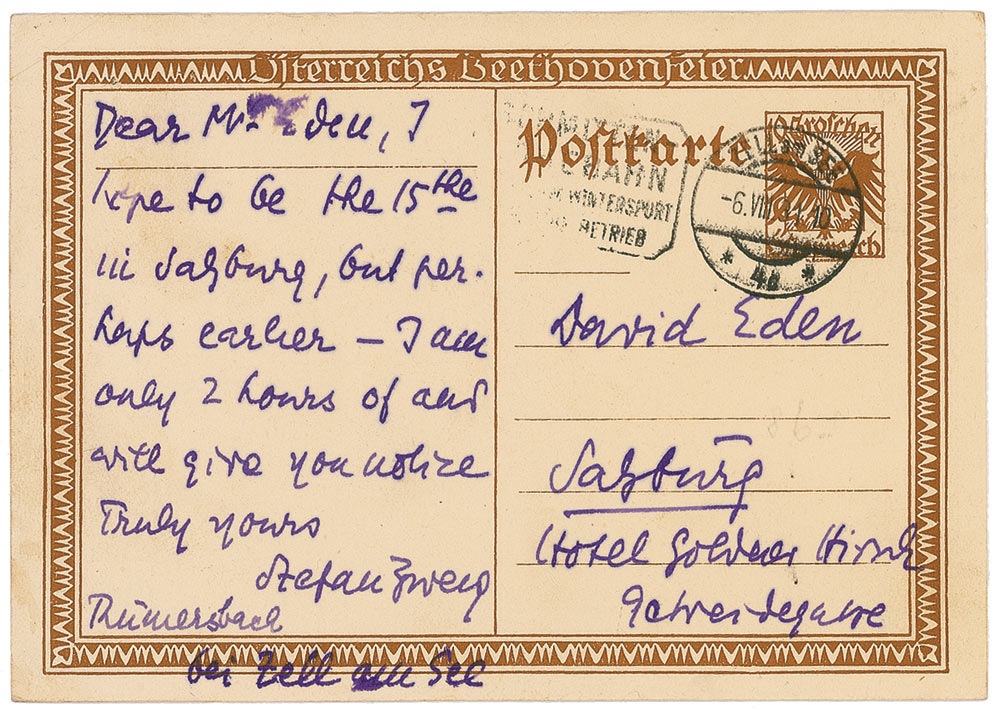 Österreichs Beethovenfeier
Dear Mr. Eden, I
hope to be the 15the
in Salzburg, but per-
haps earlier – I am
only 2 hours of and
will give you notice
Truly yours
Stefan Zweig
Thumersbach
bei Zell am See
Postkarte
BAHN
WINTERSPURT
BETRIEB
ZELL AM SEE
-6.VIII.31.10
* 4a *
10 Groschen
Österreich
David Eden
Salzburg
Hotel Goldner Hirsch
Getreidegasse